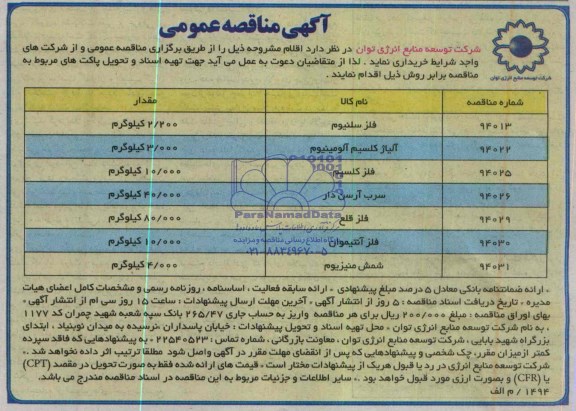 آگهی مناقصه عمومی
شرکت توسعه منابع انرژی توان
شرکت توسعه منابع انرژی توان در نظر دارد اقلام مشروحه ذیل را از طریق برگزاری مناقصه عمومی و از شرکت های
واجد شرایط خریداری نماید . لذا از متقاضیان دعوت به عمل می آید جهت تهیه اسناد و تحویل پاکت های مربوط به
مناقصه برابر روش ذیل اقدام نمایند .
شماره مناقصه نام کالا مقدار
۹۴۰۱۳ فلز سلنیوم ۲/۲۰۰ کیلوگرم
۹۴۰۲۲ آلیاژ کلسیم آلومینیوم ۳/۰۰۰ کیلوگرم
۹۴۰۲۵ فلز کلسیم ۱۰/۰۰۰ کیلوگرم
۹۴۰۲۶ سرب آرسن دار ۴۰/۰۰۰ کیلوگرم
۹۴۰۲۹ فلز قلع ۸۰/۰۰۰ کیلوگرم
۹۴۰۳۰ فلز آنتیموان ۱۰/۰۰۰ کیلوگرم
۹۴۰۳۱ شمش منیزیوم ۴/۰۰۰ کیلوگرم
ParsNamadData
پایگاه اطلاع رسانی مناقصه و مزایده
۰۲۱-۸۸۳۴۹۶۷۰-۵
* ارائه ضمانتنامه بانکی معادل ۵ درصد مبلغ پیشنهادی * ارائه سابقه فعالیت ، اساسنامه ، روزنامه رسمی و مشخصات کامل اعضای هیات
مدیره * تاریخ دریافت اسناد مناقصه : ۵ روز از انتشار آگهی * آخرین مهلت ارسال پیشنهادات : ساعت ۱۵ روز سی ام از انتشار آگهی *
بهای اوراق مناقصه : مبلغ ۲۰۰/۰۰۰ ریال برای هر مناقصه واریز به حساب جاری ۲۶۵/۴۷ بانک سپه شعبه شهید چمران کد ۱۱۷۷
، به نام شرکت توسعه منابع انرژی توان * محل تهیه اسناد و تحویل پیشنهادات : خیابان پاسداران ،نرسیده به میدان نوبنیاد ، ابتدای
بزرگراه شهید بابایی ، شرکت توسعه منابع انرژی توان ، معاونت بازرگانی ، شماره تماس : ۲۲۵۴۰۵۲۳ * به پیشنهادهایی که فاقد سپرده
کمتر ازمیزان مقرر، چک شخصی و پیشنهادهایی که پس از انقضای مهلت مقرر در آگهی واصل شود مطلقا ترتیب اثر داده نخواهد شد .*
شرکت توسعه انرژی در رد یا قبول هریک از پیشنهادات مختار است * قیمت های ارائه شده فقط به صورت تحویل در مقصد (CPT)
یا (CFR) و بصورت ارزی مورد قبول خواهد بود .* سایر اطلاعات و جزئیات مربوط به این مناقصه در اسناد مناقصه مندرج می باشد.
۱۴۹۴ / م الف